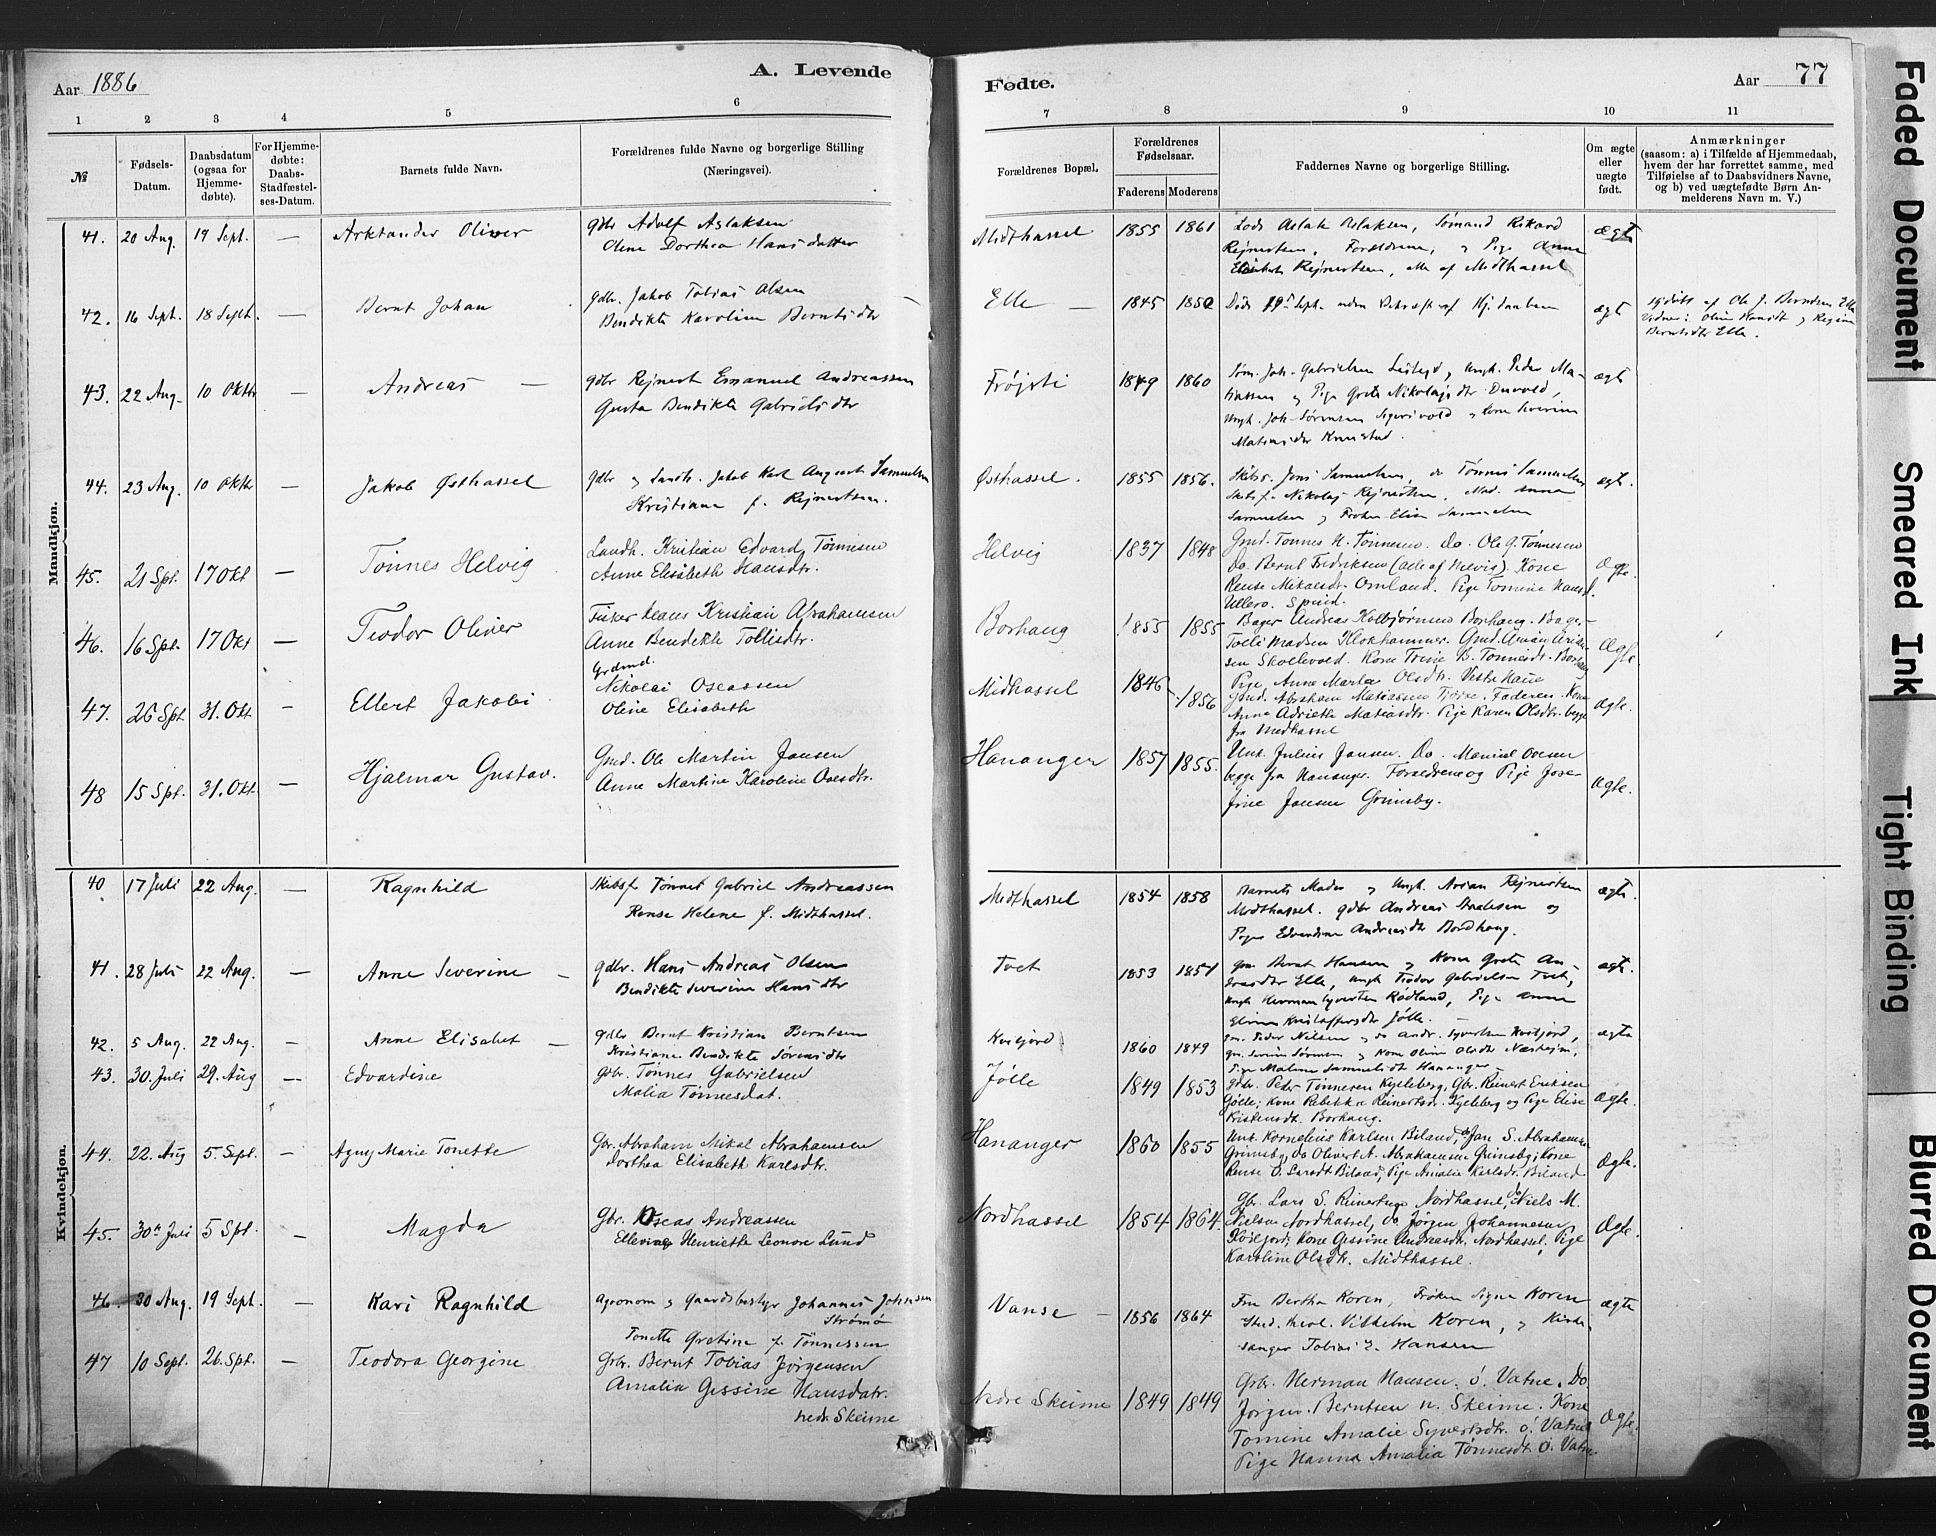 Aar 1886
A. Levende
Fødte.
Aar 77
1 2 3 4 5 6 7 8 9 10 11
№
Fødsels-Datum.
Daabsdatum (ogsaa for Hjemme-døbte).
For Hjemme-døbte: Daabs-Stadfæstel-ses-Datum.
Barnets fulde Navn.
Forældrenes fulde Navne og borgerlige Stilling
(Næringsvei).
Forældrenes Bopæl.
Forældrenes Fødselsaar.
Faderens Moderens
Faddernes Navne og borgerlige Stilling.
Om ægte eller uægte født.
Anmærkninger
(saasom: a) i Tilfælde af Hjemmedaab,
hvem der har forrettet samme, med
Tilføielse af to Daabsvidners Navne,
og b) ved uægtefødte Børn An-
melderens Navn m. V.)
Mandkjøn.
41. 20 Aug. 19 Sept. — Arktander Oliver
Gdbr Adolf Aslaksen
Olene Dorthea Hansdatter
Midthassel 1855 1861
Lods Aslak Aslaksen, Sømand Rikard
Rejnertsen, Forældrene, og Pige Anna
Elisabet Rejnertsen, alle af Midthassel
ægte
42. 16 Sept. 18 Sept. — Bernt Johan
Gdbr. Jakob Tobias Olsen
Bendikte Karoline Berntsdtr
Elle — 1845 1850
Døde 19 Sept. uden Bekræft. af Hj.daaben
ægt
Hjdøbt af Ole J. Berntsen Elle
Vidner: Oline Hansdt og Regine
Berntsdtr Elle.
43. 22 Aug. 10 Oktbr — Andreas —
Gdbr Rejnert Emanuel Andreassen
Gusta Bendikte Gabrielsdtr
Frøjsti 1849 1860
Søm. Joh. Gabrielsen, Ungk. Peder Ma-
thiassen og Pige Grete Nikolajsdtr
Ungk. Joh. Sørensen Sigersvold og Kone Severine
Matiasdtr
ægt
44. 23 Aug. 10 Oktbr — Jakob Østhassel
Gdbr og Landh. Jakob Karl August Samuelsen
Kristiane f. Rejnertsen.
Østhassel. 1855 1856.
Skibsr. Jons Samuelsen, do Tønnes Samuelsen
Skibsf. Nikolaj Rejnertsen, Mad. Anna
Samuelsen og Frøken Elise Samuelsen
ægt.
45. 21 Spt. 17 Okt — Tønnes Helvig
Landh. Kristian Edvard Tønnesen
Anne Elisabeth Hansdtr.
Helvig 1837 1848
Gmd. Tønnes N. Tønnesen. Do. Ole G. Tønnesen
Do. Bernt Fredriksen (alle af Helvig). Kone
Rense Mikalsdtr. Omland. Pige Tomine Hansd.
Ullerø. Spind.
Ægte.
46. 16 Spt. 17 Okt — Teodor Oliver
Fisker Hans Kristian Abrahamsen
Anne Bendikte Tollisdtr.
Borhaug 1855 1855
Bager Andreas Kolbjørnsen Borhaug. Bager
Tolli Madsen Klokhammer. Gmd. Anian Arian-
sen Skollevold. Kone Trine B. Tønnesdt. Borhaug
Pige Anne Marta Olsdtr. Vestehaue
Ægte.
47. 26 Spt 31. Okt — Ellert Jakobi
Grdmd.
Nikolai Oseassen
Oline Elisabeth
Midhassel 1846 1856
Gmd. Abraham Matiassen. Faderen. Kone
Anne Adriette Matiasdtr. Pige Karen Olsdtr. begge
fra Midhassel
Ægte.
48 15 Spt. 31. Okt — Hjalmar Gustav.
Gmd. Ole Martin Jansen
Anne Martine Karoline Ovesdtr.
Hananger 1857 1855.
Unk. Julius Jansen. Do. Manius Ovesen
begge fra Hananger. Forældrene og Pige Jose-
fine Jansen Grimsby.
Ægte.
Kvindekjøn.
40 17 Juli 22 Aug. — Ragnhild
Skibsf Tønnes Gabriel Andreassen
Rense Helene f. Midthassel.
Midthassel 1854 1858
Barnets Moder og Ungk. Arian Rejnertsen
Midthassel. Gdbr Andreas Aanensen og
Pige Edvardine Andreasdtr Bordhaug.
ægt.
41. 28 Juli 22 Aug. — Anne Severine —
Gdbr. Hans Andreas Olsen
Bendikte Severine Hansdtr
Tvet 1853 1857
Gm. Bernt Hansen og Kone Grete An-
dreasdtr Elle, Ungk Teodor Gabrielsen Tvet,
Ungk Herman Syvertsen Rødland, Pige Anna
Elisan Kristoffersdtr Jølle.
ægt.
42. 5 Aug. 22 Aug. — Anne Elisabet —
Gdbr Bernt Kristian Berntsen
Kristiane Bendikte Sørensdtr
Kviljord 1860 1849
Gm. Peder Nielsen og do Andr. Syvertsen Kviljord,
Gm. Severin Sørensen og Kone Oline Olsdtr Næshejm,
Pige Maline Samuelsdt Hananger
ægte
43. 30. Juli 29. Aug — Edvardine
Gbr. Tønnes Gabrielsen
Malia Tønnesdat.
Jølle 1849 1853
Gdbr. Peder Tønnesen Kjelleberg, Gbr. Reinert Eriksen
Jølle; Kone Rebekka Reinertsdr. Kjelleberg og Pige Elise
Kristensdt. Borhaug.
Ægte.
44. 22. Aug 5. Sept. — Agnes Marie Tonette
Gbr. Abraham Mikal Abrahamsen
Dorthea Elisabeth Karlsdtr.
Hananger 1860 1855
Unk. Kornelius Karlsen Biland, do Jan S. Abrahamsen
Grimsby, do Olivert A. Abrahamsen Grimsby; Kone
Rense O. Larsdt Biland, Pige Amalie Karlsdtr. Biland
Ægte.
45. 30te Juli 5 Spt. — Magda
Gbr. Oseas Andreassen
Ellevine Henriette Leonore Lund
Nordhassel 1854 1864.
Gbr. Lars S. Reinertsen Nordhassel, do Niels M.
Nielsen Nordhassel, do Jørgen Johannesen
Kviljord; Kone Gessine Andreasdt. Nordhassel, Pige
Karoline Olsdt. Midthassel.
Ægte.
46. 30 Aug. 19 Sept. — Kari Ragnhild
Agronom og Gaardsbestyr Johannes Johnsen
Strømø
Tonette Gretine f. Tønnessen
Vanse — 1856 1864
Fru Bertha Koren, Frøken Signe Koren
Stud. theol. Vilhelm Koren, og Kirke-
sanger Tobias E. Hansen
ægte
47 10 Sept. 26. Spt. — Teodora Georgine
Gbr. Bernt Tobias Jørgensen
Amalia Gessine Hansdatr.
nedr. Skeime
Nedre Skeime 1849 1849
Gbr. Herman Hansen. ö. Vatne. Do
Jørgen Berntsen n. Skeime. Kone
Tomine Amalie Syvertsdtr. ö. Vatne
Pige Hanna Amalia Tønnesdt. ö. Vatne
Ægte.
Faded Document
Smeared Ink
Tight Binding
Blurred Document